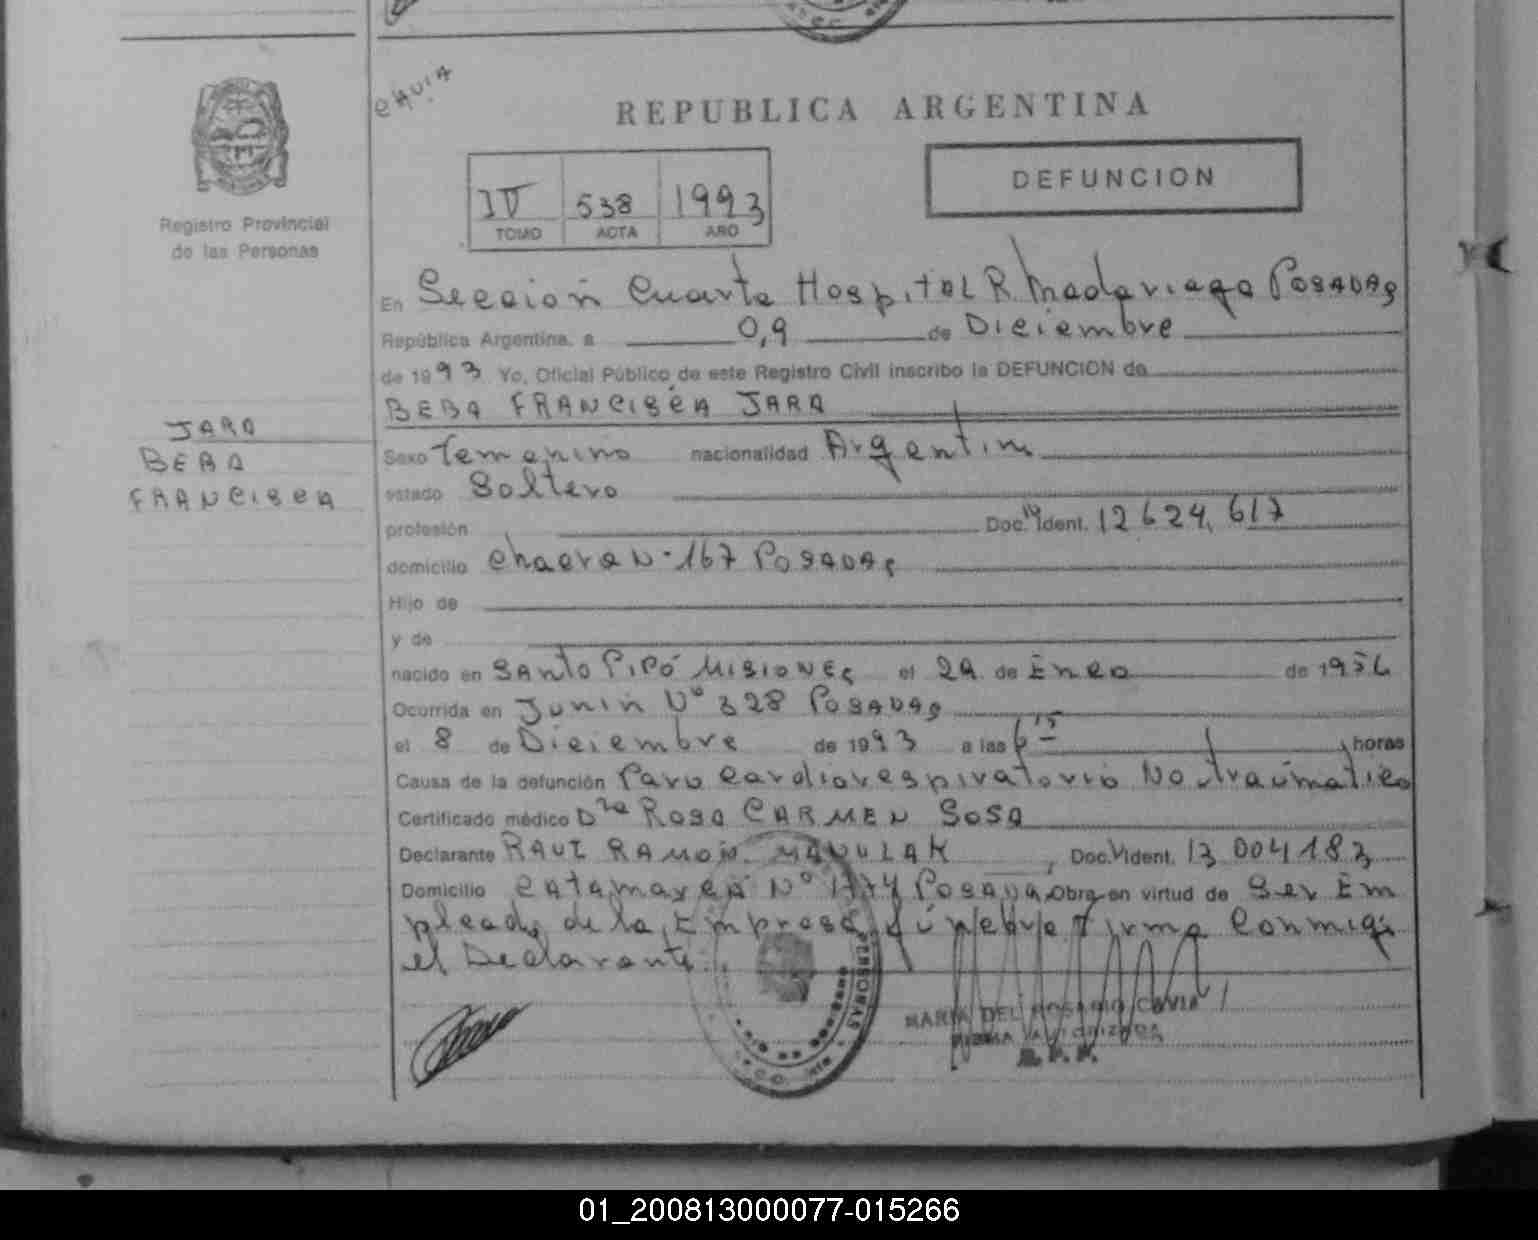 CAVIA
REPUBLICA ARGENTINA
Registro Provincial
de las Personas
IV 538 1993
TOMO ACTA AÑO
DEFUNCION
En Sección Cuarta Hospital R Madariaga Posadas
República Argentina, a 0,9 de Diciembre
de 1993 Yo, Oficial Público de este Registro Civil inscribo la DEFUNCION de
BEBA FRANCISCA JARA
JARA
BEBA
FRANCISCA
Sexo Femenino nacionalidad Argentina
estado Soltero
profesión Doc. Ident. 12 624, 617
domicilio Chacra N-167 Posadas
Hijo de
y de
nacido en Santo Pipó Misiones el 29 de Enero de 1956
Ocurrida en Junín Nº 328 Posadas
el 8 de Diciembre de 1993 a las 6 15 horas
Causa de la defunción Paro Cardiorespiratorio No traumatico
Certificado médico Dra ROSA CARMEN SOSA
Declarante RAUL RAMON Doc. Ident. 13 004 183
Domicilio Catamarca Nº 1774 Posadas Obra en virtud de Ser Em
pleado de la Empresa fúnebre Firma Conmigo
el Declarante.
PERSONAS
MARIA DEL ROSARIO CAVIA
FIRMA AUTORIZADA
R. P. P.
01_200813000077-015266